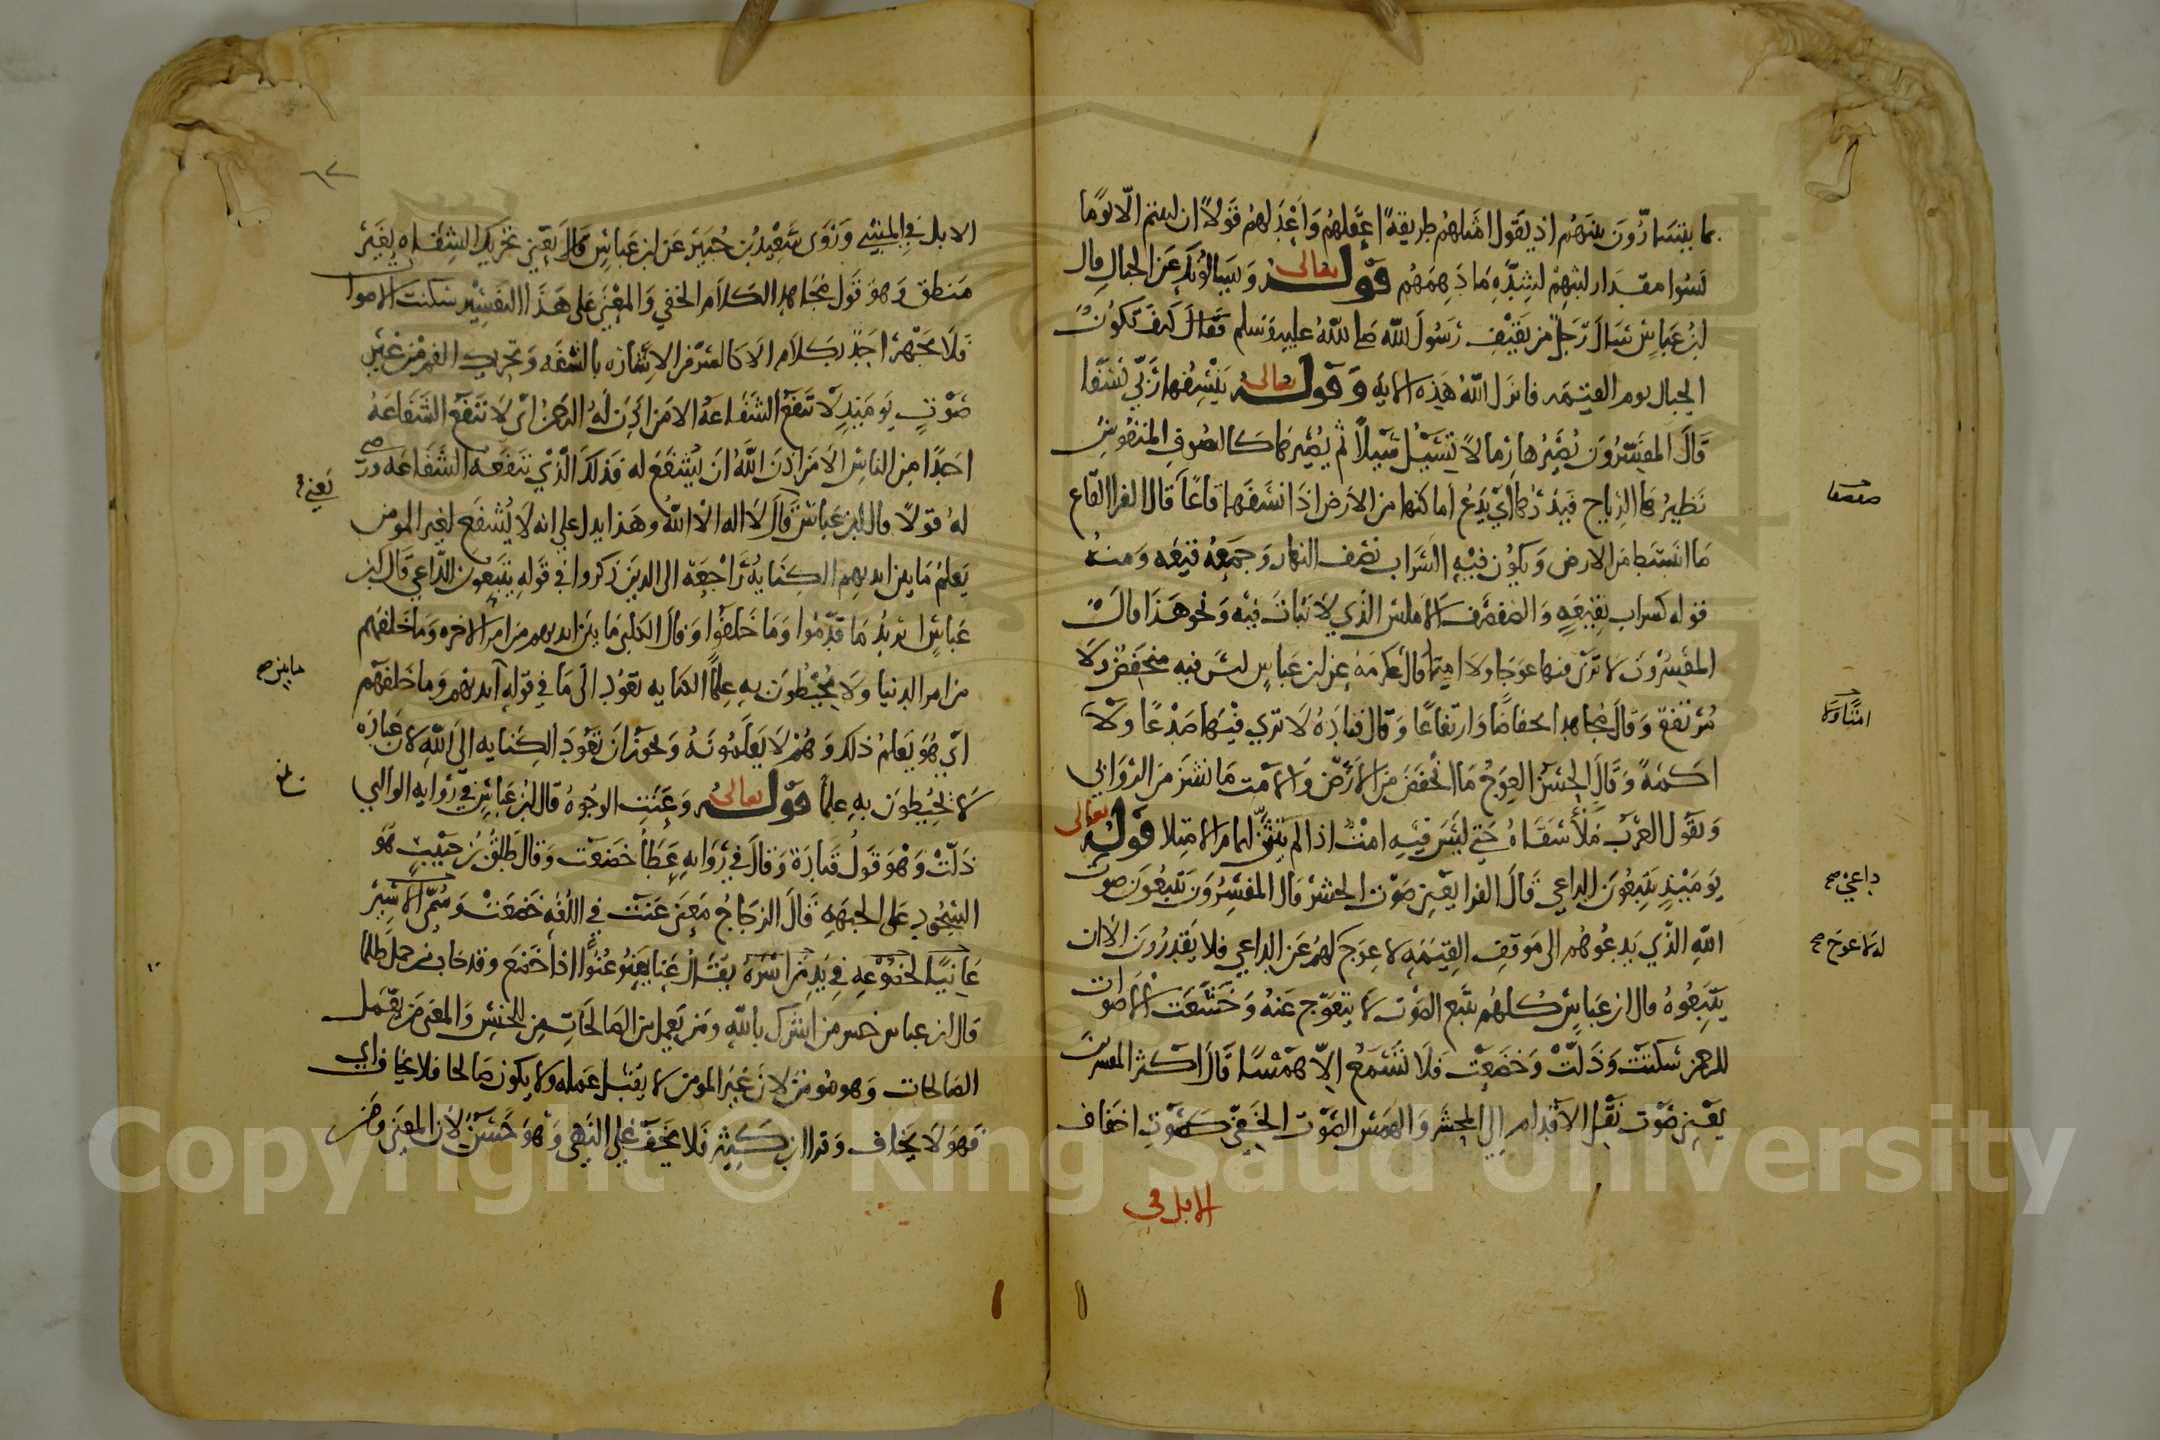 بما يتسارّون بينهم اذ يقول امثلهم طريقةً اعقلهم واعدلهم قولاً ان لبثتم الّا يومًا
نسوا مقدار لبثهم لشدّة ما دهمهم قوله تعالى ويسالونك عن الجبال قال
ابن عباس سال رجل من ثقيف رسول الله صلى الله عليه وسلم فقال كيف تكون
الجبال يوم القيمه فانزل الله هذه الايه وقوله تعالى ينسفها ربي نسفا
قال المفسّرون يُصيّرها رمالاً تسيل سيلاً ثم يصيّرها كالصوف المنفوش
تطيرها الرياح فيذرها اي يدع اماكنها من الارض اذا نسفها قاعًا قال الفرا القاع
صفصفا
ما انبسط من الارض ويكون فيه السراب نصف النهار وجمعه قيعه ومنه
قوله كسراب بقيعةٍ والصفصف الاملس الذي لا نبات فيه ونحو هذا قال
المفسرون لا ترى فيها عوجا ولا امتا قال عكرمه عن ابن عباس ليس فيه منخفض ولا
مرتفع وقال مجاهد انخفاضًا وارتفاعًا وقال قتاده لا ترى فيها صدعًا ولا
اكمةً وقال الحسن العوج ما انخفض من الارض والامت ما نشز من الروابي
ويقول العرب ملأ سقاه حتى ليس فيه امت اذا لم يبق لها من الامتلا قوله تعالى
يوميذٍ يتبعون الداعي قال الفرا يعني صوت الحشر قال المفسرون يتبعون صوت
داعي صح
الله الذي يدعوهم الى موقف القيمه لا عوج لهم عن الداعي فلا يقدرون الا ان
له لا عوج صح
يتّبعوه قال ابن عباس كلهم يتبع الصوت لا يتعوّج عنه وخشعت الاصوات
للرحمن سكنت وذلّت وخضعت فلا تسمع الا همسًا قال اكثر المفسرين
يعني صوت نقل الاقدام الى المحشر والهمس الصوت الخفيّ كصوت اخفاف
الابل في
الابل في المشي وروى سعيد بن جبير عن ابن عباس قال يعني تحريك الشفاه بغير
منطق وهو قول مجاهد الكلام الخفي والمعنى على هذا التفسير سكنت الاصوات
فلا يجهر احدٌ بكلام الا كالسرّ من الاشاره بالشفه وتحريك الفم من غير
صوتٍ يوميذٍ لا تنفع الشفاعة الا من اذن له الرحمن اي لا تنفع الشفاعة
احدًا من الناس الا من اذن الله ان يُشفع له فذلك الذي تنفعه الشفاعه ورضي
يعني
له قولاً قال ابن عباس قال لا اله الا الله وهذا يدل على انه لا يُشفع لغير المومن
يعلم ما بين ايديهم الكناية راجعة الى الذين ذكروا في قوله يتبعون الداعي قال ابن
عباس يريد ما قدّموا وما خلفوا وقال الكلبي ما بين ايديهم من امر الاخره وما خلفهم
من امر الدنيا ولا يحيطون به علمًا الكنايه تعود الى ما في قوله ايديهم وما خلفهم
ما بين صح
اي هو يعلم ذلك وهم لا يعلمونه ويجوز ان تعود الكنايه الى الله لان عباده
لا يحيطون به علمًا قوله تعالى وعنت الوجوه قال ابن عباس في روايه الوالبي
ذلّت وهو قول قتادة وقال في روايه عطا خضعت وقال طلق بن حبيب هو
السجود على الجبهه قال الزجاج معنى عنت في اللغه خضعت وسُمّي الاسير
عانيًا لخضوعه في يد من اسره يقال عنا يعنو عنوًا اذا خضع وقد خاب من حمل ظلما
قال ابن عباس خسر من اشرك بالله ومن يعمل من الصالحات من للجنس والمعنى من يعمل
الصالحات وهو مومن لان غير المومن لا يقبل عمله ولا يكون صالحا فلا يخاف اي
فهو لا يخاف وقرا ابن كثير فلا يخف على النهي وهو حسن لان المعنى ومن
Copyright © King Saud University